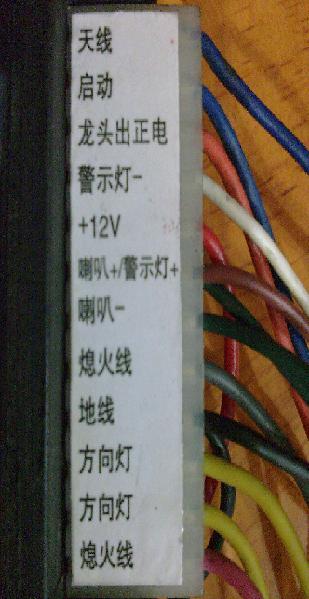 天线
启动
龙头出正电
警示灯-
+12V
喇叭+/警示灯+
喇叭-
熄火线
地线
方向灯
方向灯
熄火线